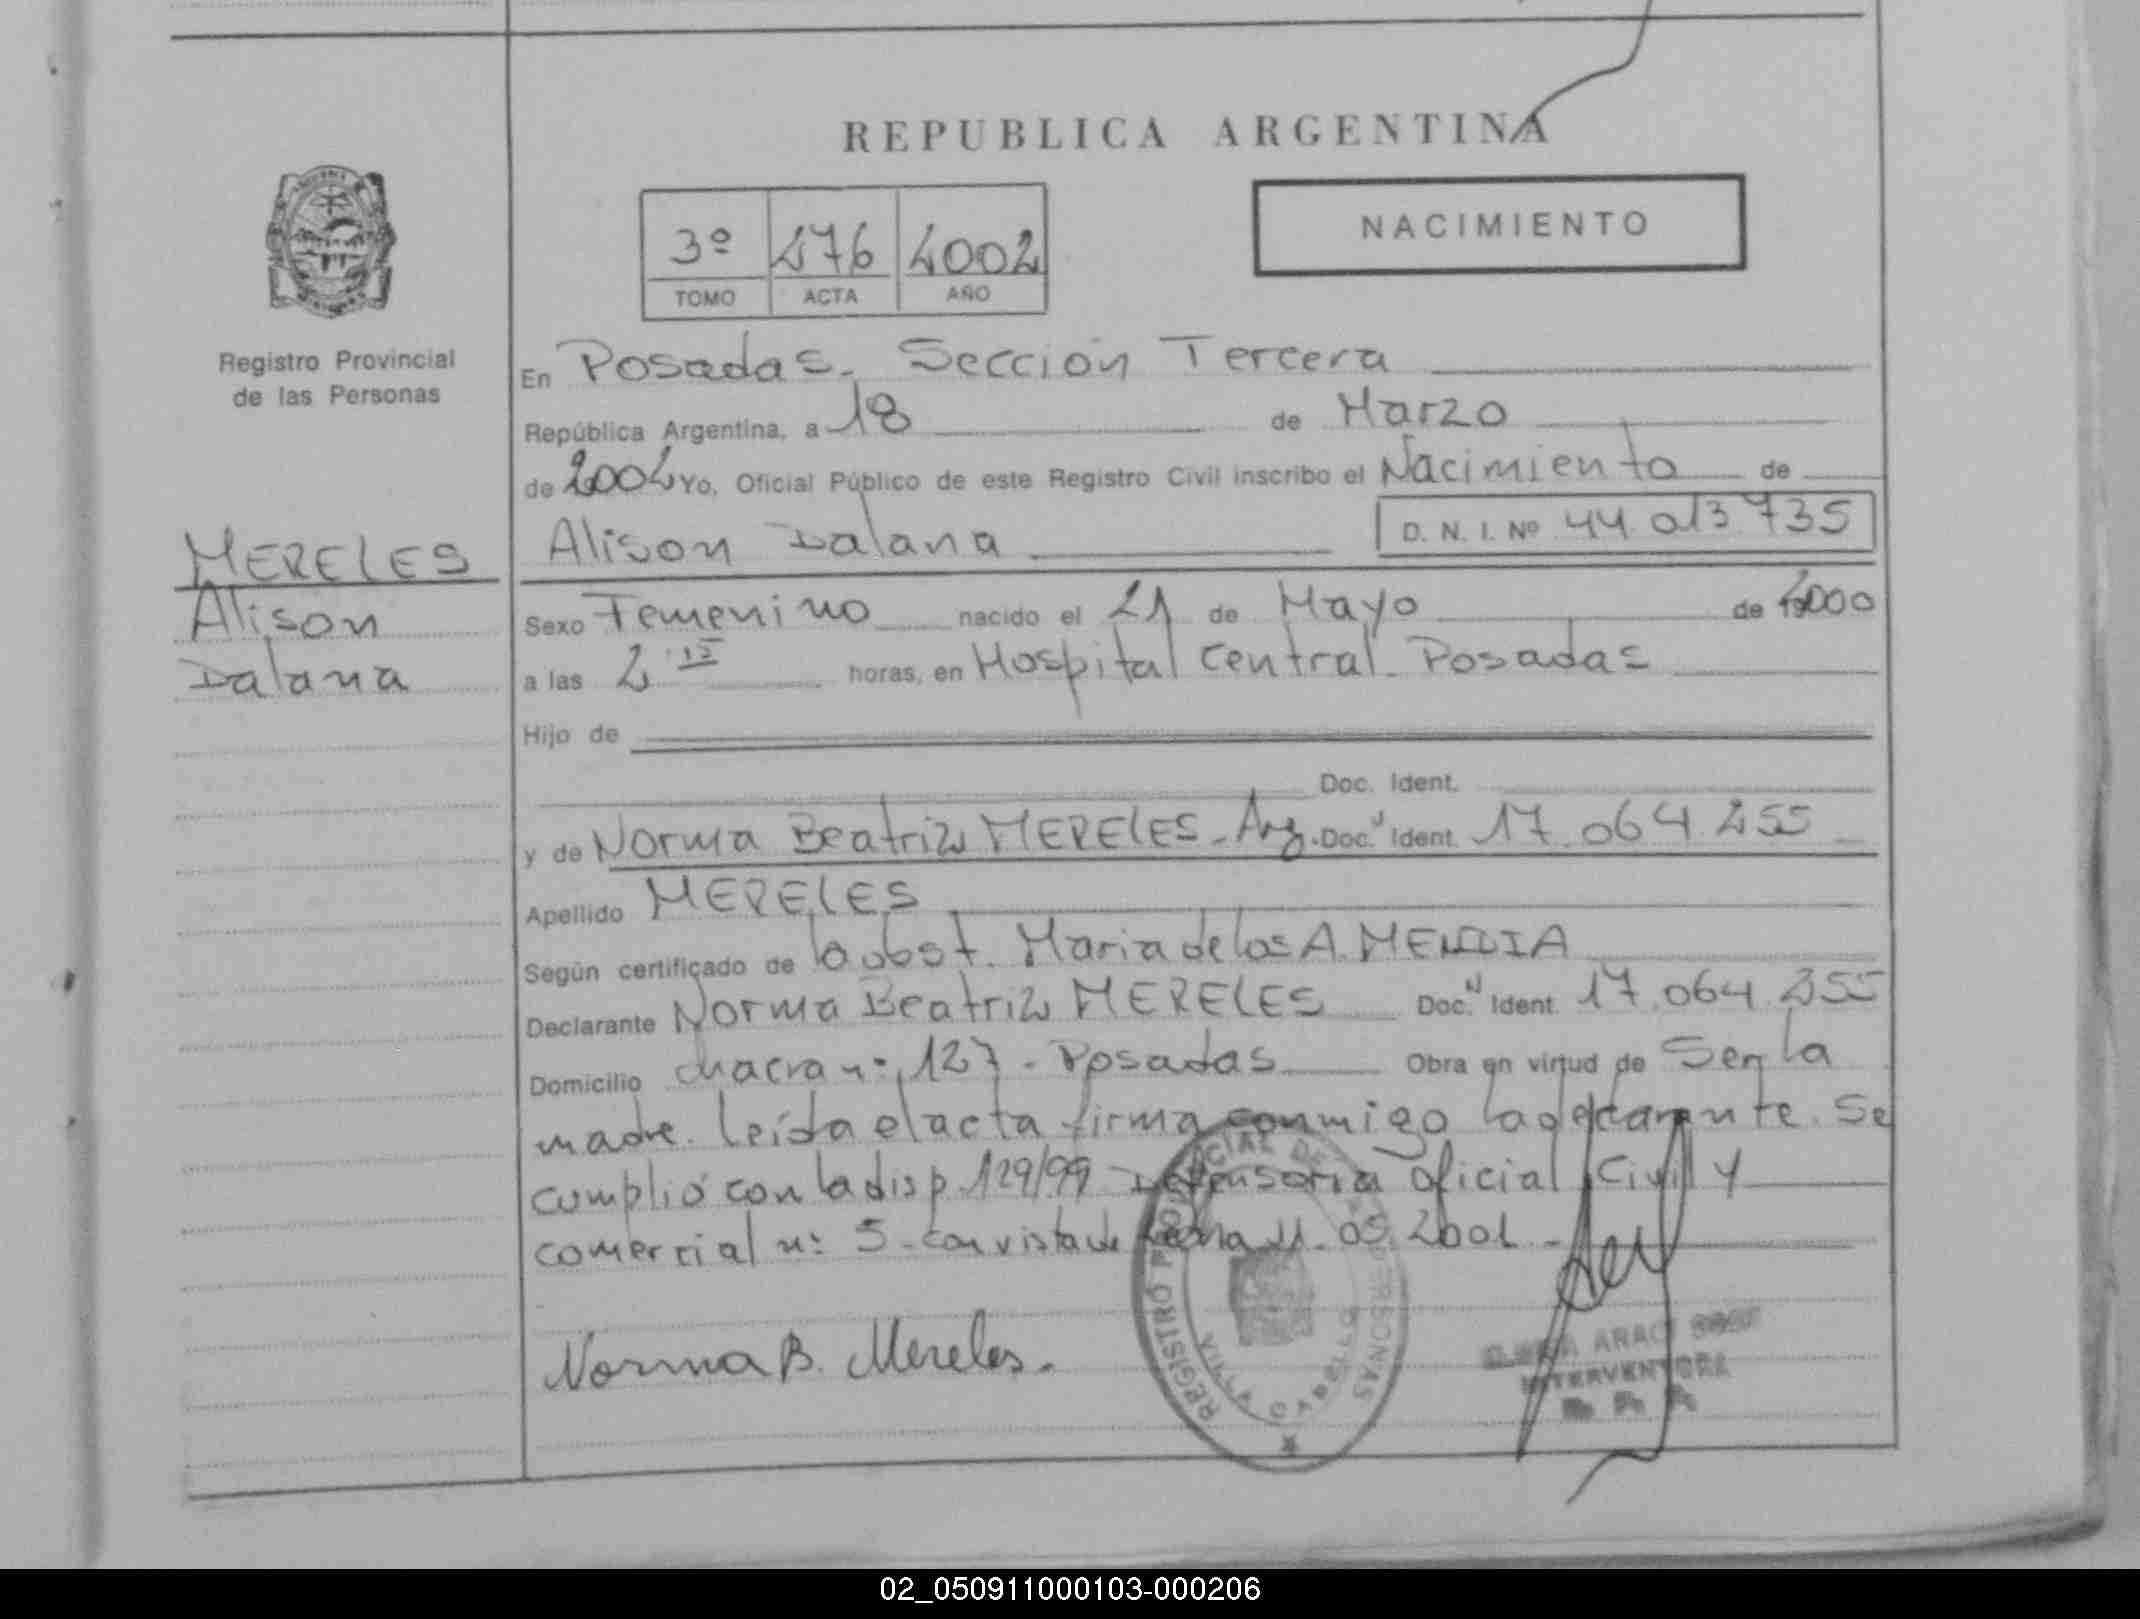 REPUBLICA ARGENTINA
3º 276 2002
TOMO ACTA AÑO
NACIMIENTO
Registro Provincial
de las Personas
MERELES
Alison
Daiana
En Posadas. Sección Tercera
República Argentina, a 18 de Marzo
de 2002 Yo, Oficial Público de este Registro Civil inscribo el Nacimiento de
Alison Daiana D. N. I. Nº 44.013.735
Sexo Femenino nacido el 21 de Mayo de 2000
a las 2 15 horas, en Hospital Central. Posadas
Hijo de
Doc. Ident.
y de Norma Beatriz MERELES - Arg. Doc. Ident. 17.064.255
Apellido MERELES
Según certificado de la obst. Maria de los A.
Declarante Norma Beatriz MERELES Doc. Ident. 17.064.255
Domicilio chacra nº 127 - Posadas Obra en virtud de Ser la
madre. leída el acta firma conmigo la declarante. Se
cumplió con la disp 129/99 Defensoria oficial Civil y
comercial nº 5 - con vista de fecha 11.05.2001.-
Norma B. Mereles.
REGISTRO PROVINCIAL DE LAS PERSONAS
VILLA CABELLO
INTERVENTORA
02_050911000103-000206